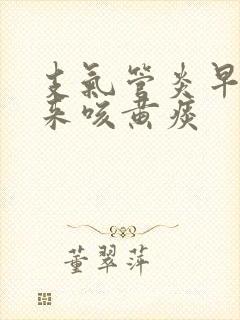 支氣管炎早
来咳黄痰
董翠萍